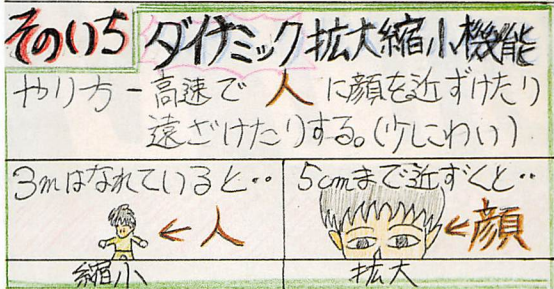 そのいち ダイナミック拡大縮小機能
やり方ー高速で人に顔を近ずけたり
遠ざけたりする。(少しこわい)
3mはなれていると‥
←人
縮小
5cmまで近ずくと‥
←顔
拡大